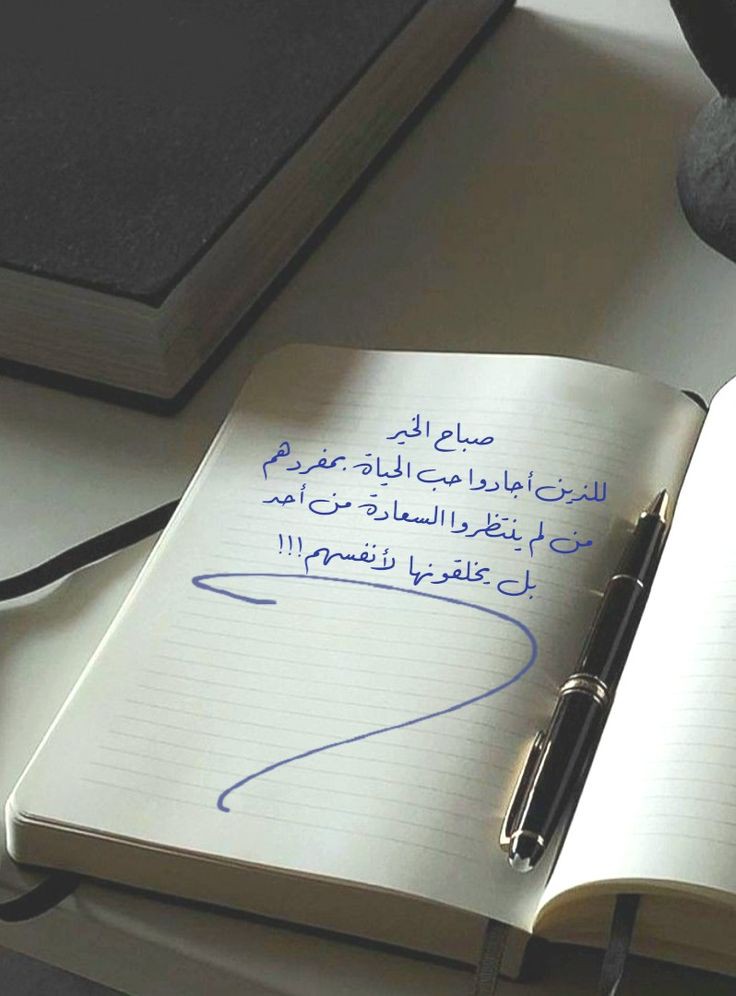 صباح الخير
للذين أجادوا حب الحياة بمفردهم
من لم ينتظروا السعادة من أحد
بل يخلقونها لأنفسهم!!!